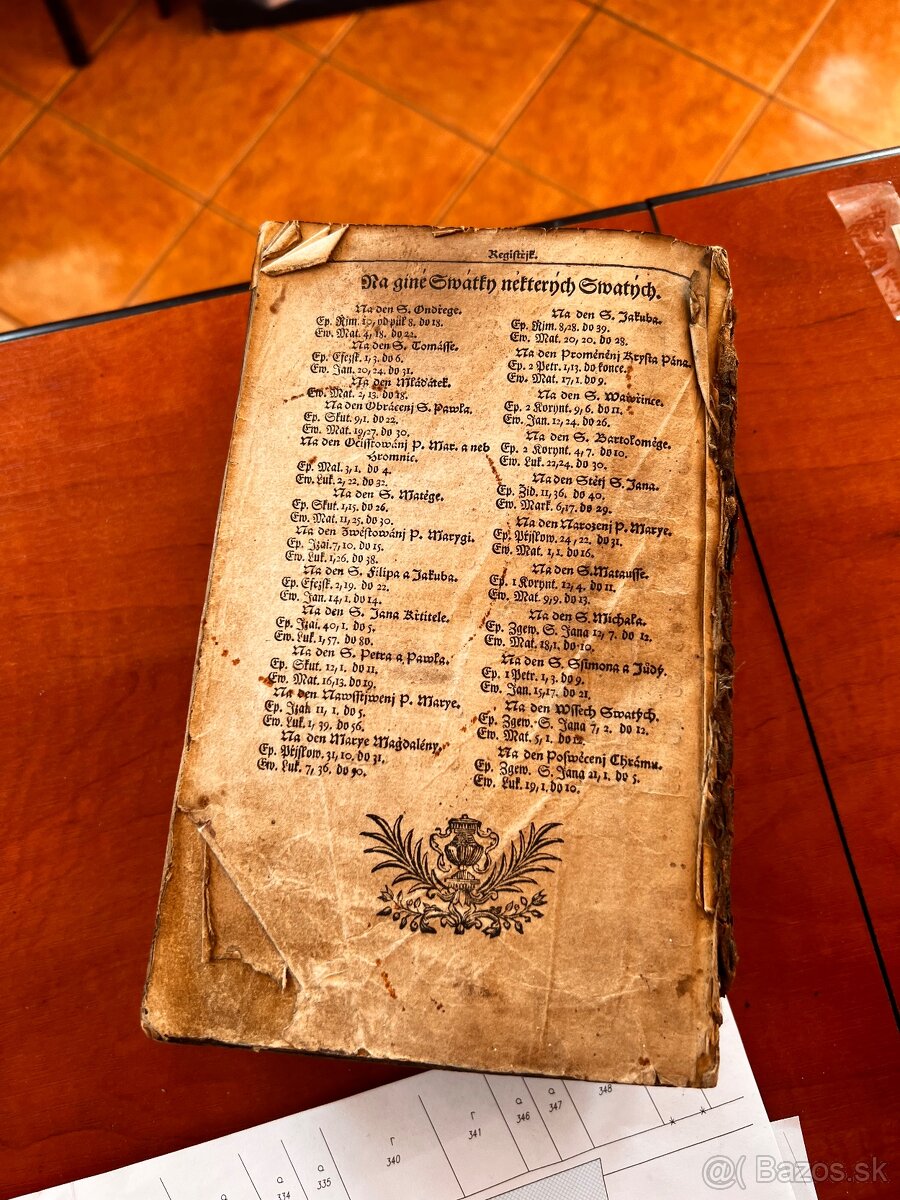 Registřjk.
Na giné Swátky některých Swatých.
Na den S. Ondřege.
Ep. Řjm. 10, od půl 8. do 18.
Ew. Mat. 4, 18. do 22.
Na den S. Tomásse.
Ep. Efezsk. 1, 3. do 6.
Ew. Jan. 20, 24. do 31.
Na den Mláďátek.
Ew. Mat. 2, 13. do 18.
Na den Obrácenj S. Pawla.
Ep. Skut. 9, 1. do 22.
Ew. Mat. 19, 27. do 30.
Na den Očisstowánj P. Mar. a neb
Hromnic.
Ep. Mal. 3, 1. do 4.
Ew. Luk. 2, 22. do 32.
Na den S. Matěge.
Ep. Skut. 1, 15. do 26.
Ew. Mat. 11, 25. do 30.
Na den Zwěstowánj P. Marygi.
Ep. Izai. 7, 10. do 15.
Ew. Luk. 1, 26. do 38.
Na den S. Filipa a Jakuba.
Ep. Efezsk. 2, 19. do 22.
Ew. Jan. 14, 1. do 14.
Na den S. Jana Křtitele.
Ep. Izai. 40, 1. do 5.
Ew. Luk. 1, 57. do 80.
Na den S. Petra a Pawla.
Ep. Skut. 12, 1. do 11.
Ew. Mat. 16, 13. do 19.
Na den Nawsstjwenj P. Marye.
Ep. Izai. 11, 1. do 5.
Ew. Luk. 1, 39. do 56.
Na den Marye Magdalény.
Ep. Přjslow. 31, 10. do 31.
Ew. Luk. 7, 36. do
Na den S. Jakuba.
Ep. Řjm. 8, 28. do 39.
Ew. Mat. 20, 20. do 28.
Na den Proměněnj Krysta Pána.
Ep. 2 Petr. 1, 13. do konce.
Ew. Mat. 17, 1. do 9.
Na den S. Wawřince.
Ep. 2 Korynt. 9, 6. do 11.
Ew. Jan. 12, 24. do 26.
Na den S. Bartoloměge.
Ep. 2 Korynt. 4, 7. do 10.
Ew. Luk. 22, 24. do 30.
Na den Stětj S. Jana.
Ep. Žid. 11, 36. do 40.
Ew. Mark. 6, 17. do 29.
Na den Narozenj P. Marye.
Ep. Přjslow. 24, 22. do 31.
Ew. Mat. 1, 1. do 16.
Na den S. Matausse.
Ep. 1 Korynt. 12, 4. do 11.
Ew. Mat. 9, 9. do 13.
Na den S. Michala.
Ep. Zgew. S. Jana 12, 7. do 12.
Ew. Mat. 18, 1. do 10.
Na den S. Ssimona a Júdy.
Ep. 1 Petr. 1, 3. do 9.
Ew. Jan. 15, 17. do 21.
Na den Wssech Swatých.
Ep. Zgew. S. Jana 7, 2. do 12.
Ew. Mat. 5, 1. do 12.
Na den Poswěcenj Chrámu.
Ep. Zgew. S. Jana 21, 1. do 5.
Ew. Luk. 19, 1. do 10.
334
335
340
341
346
347
348
@( Bazos.sk